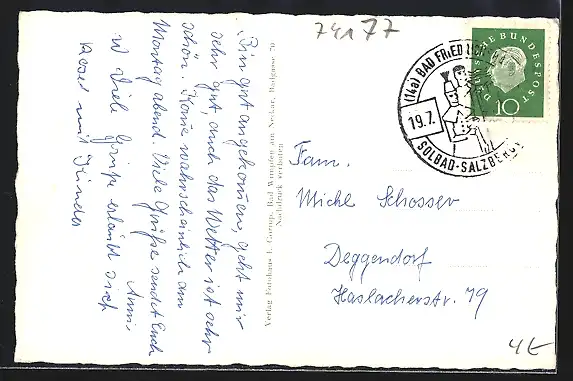 74177
Bin gut angekommen, geht mir
sehr gut, auch das Wetter ist sehr
schön. Kome wahrscheinlich am
Montag abend. Viele Grüße sendet Euch
Anni
Viele Grüße erlaubt sich
mit Kinder
Verlag Fotohaus L. Bad Wimpfen am Neckar, Badgasse
Nachdruck verboten
(14a) BAD FRIEDRICHSHALL
19.7.
SOLBAD-SALZBERGW
DEUTSCHE BUNDESPOST
10
Fam.
Michl Schosser
Deggendorf
Haslacherstr. 79
4E